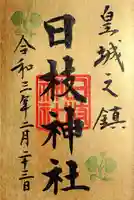 皇城之鎮
日枝神社
令和三年二月二十三日